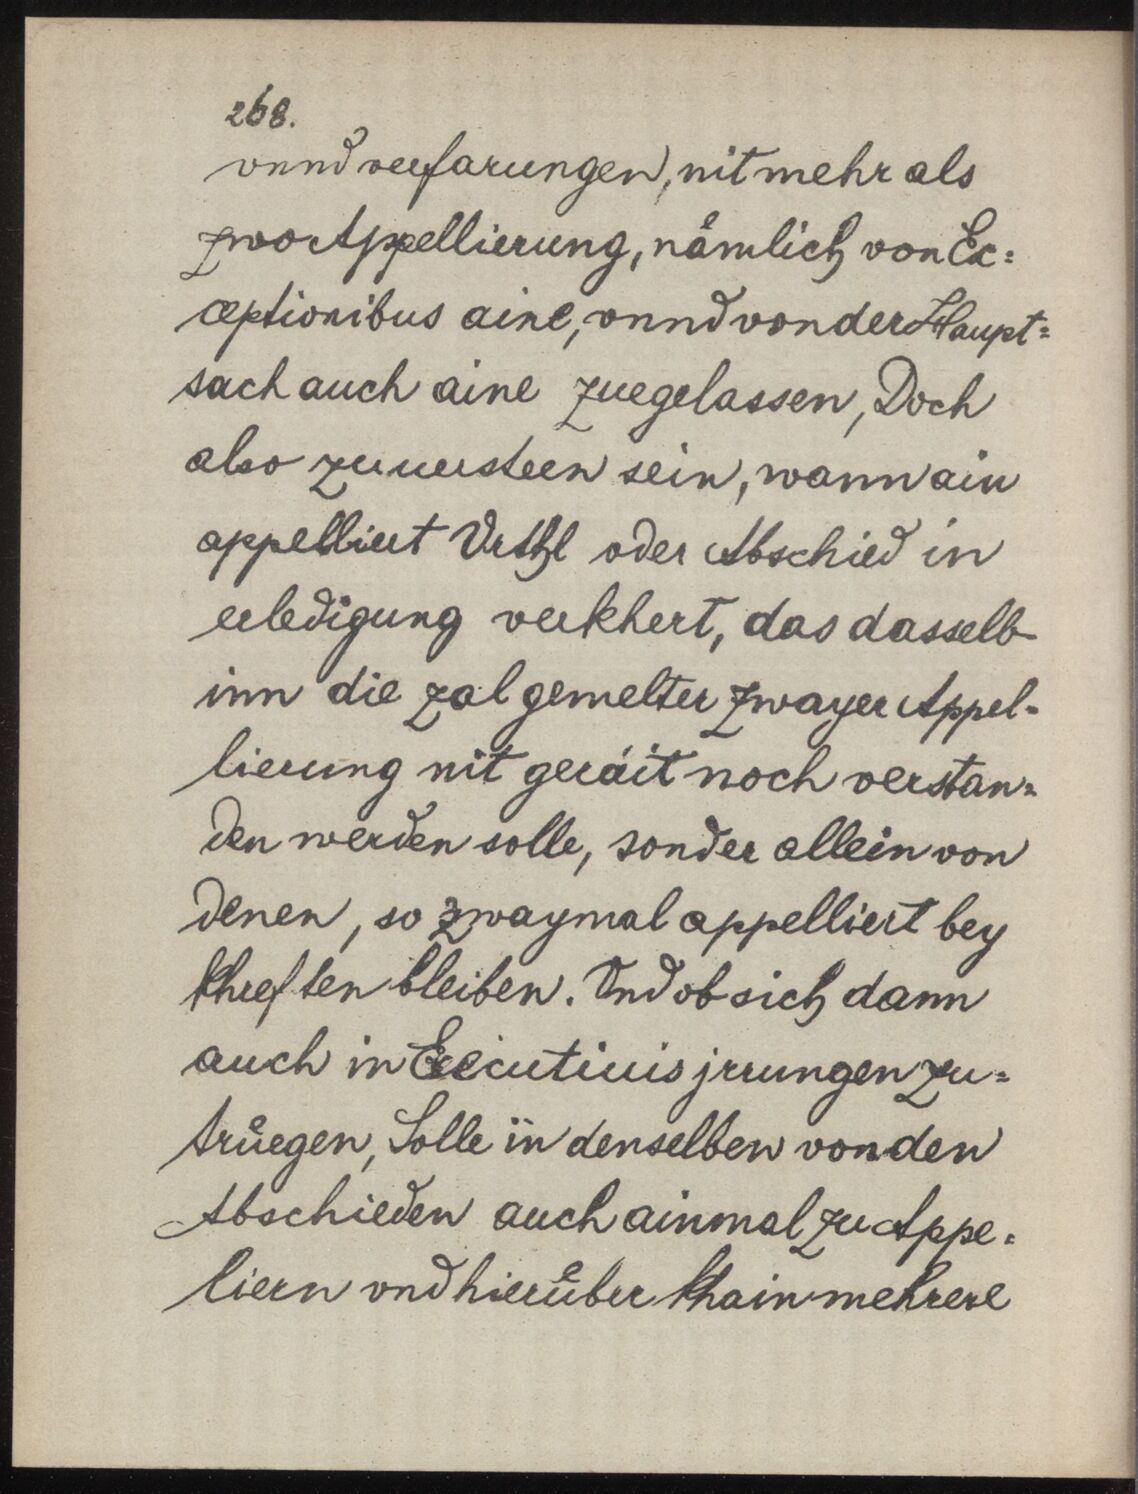 268.
vnnd verfarungen, nit mehr als
zwo Appellierung, nåmlich von Ex=
ceptionibus aine, vnnd von der Haupt=
sach auch aine zuegelassen, Doch
also zuuersteen sein, wann ain
appelliert Vrthl oder Abschied in
erledigung verkhert, das dasselb
inn die zal gemelter zwayer Appel=
lierung nit geräit noch verstan=
den werden solle, sonder allein von
denen, so zwaymal appelliert bey
khreften bleiben. Vnd ob sich dann
auch in Executiuis jrrungen zu=
trůegen, Solle in denselben von den
Abschieden auch ainmal zu Appe=
liern vnd hierůber khain mehrere